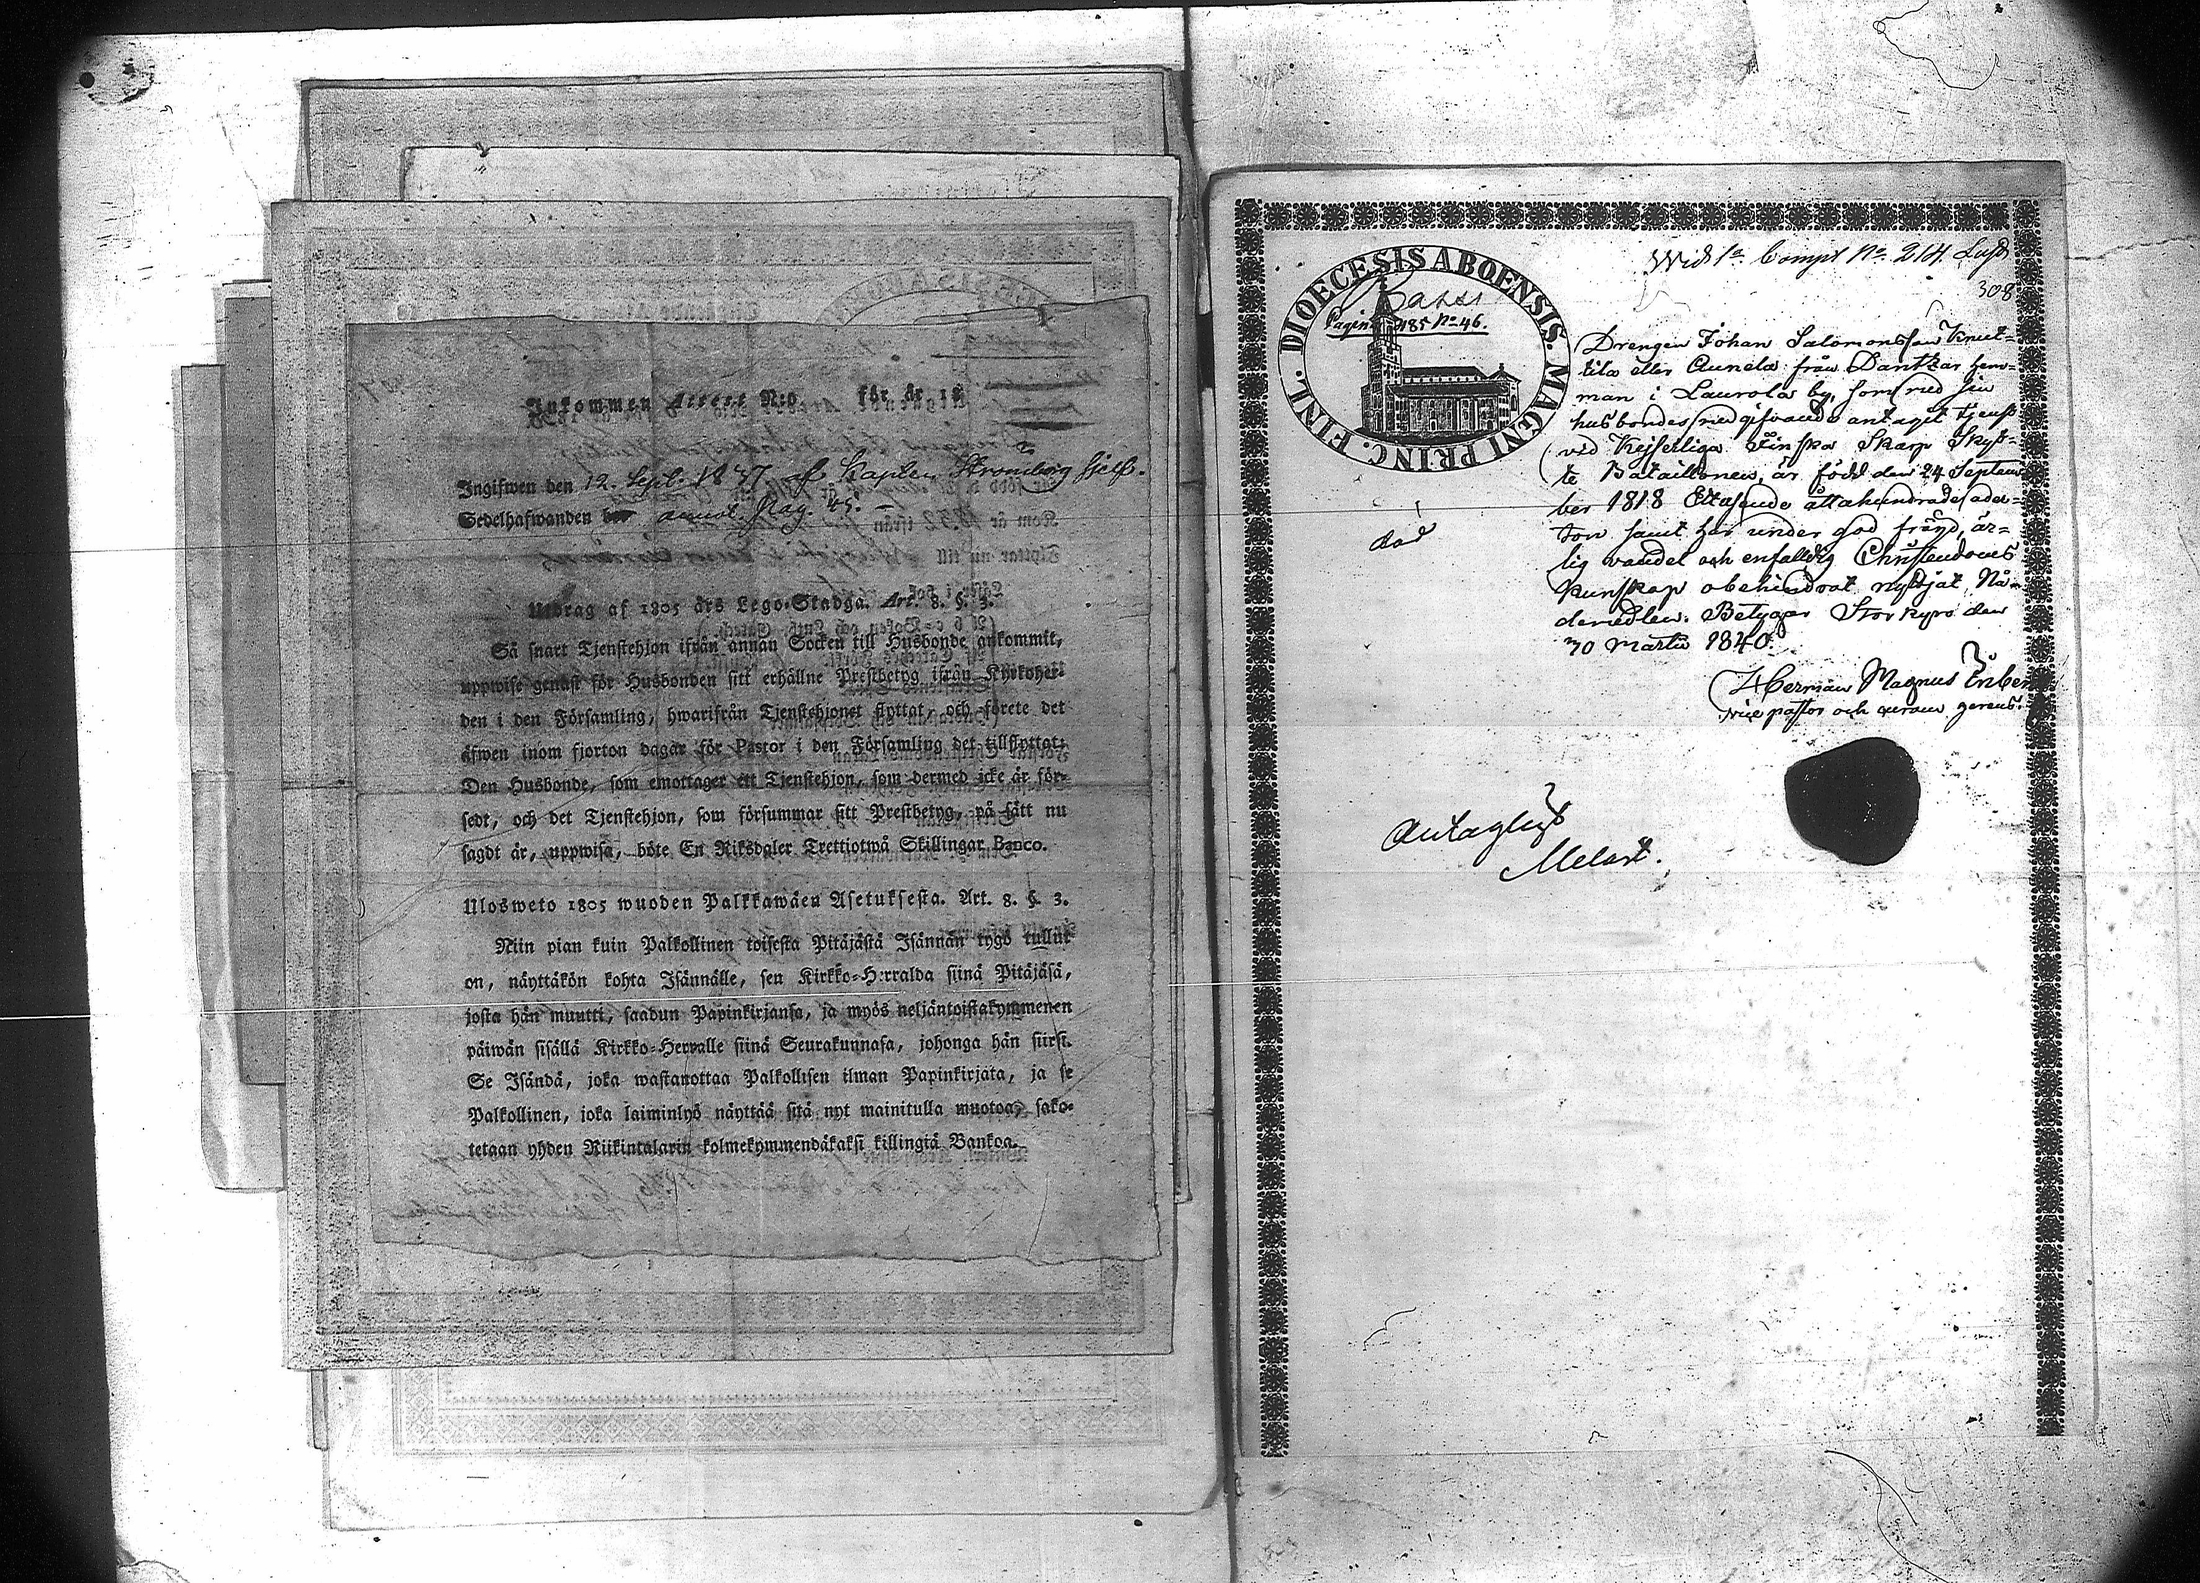 Inkommen Attest N:o för år 18
Ingifwen den 12. Sept. 1837 af Kapten Strömborg sjelf.
Sedelhafwanden annot. Pag. 45. –
Utdrag af 1805 års Lego-Stadga. Art. 8. §. 3.
Så snart Tjenstehjon ifrån annan Socken till Husbonde ankommit,
uppwise genast för Husbonden sitt erhållne Prestbetyg ifrån Kyrkoher-
den i den Församling, hwarifrån Tjenstehjonet flyttat, och förete det
äfwen inom fjorton dagar för Pastor i den Församling det tillflyttat;
Den Husbonde, som emottager ett Tjenstehjon, som dermed icke är för-
sedt, och det Tjenstehjon, som försummar sitt Prestbetyg, på sätt nu
sagdt är, uppwisa, böte En Riksdaler Trettiotwå Skillingar Banco.
Ulosweto 1805 wuoden Palkkawäen Asetuksesta. Art. 8. §. 3.
Niin pian kuin Palkollinen toisesta Pitäjästä Isännän tygö tullut
on, näyttäkön kohta Isännälle, sen Kirkko-Herralda siinä Pitäjäsä,
josta hän muutti, saadun Papinkirjansa, ja myös neljäntoistakymmenen
päiwän sisällä Kirkko-Herralle siinä Seurakunnasa, johonga hän siirst.
Se Isändä, joka wastanottaa Palkollisen ilman Papinkirjata, ja se
Palkollinen, joka laiminlyö näyttää sitä nyt mainitulla muotoa, sako-
tetaan yhden Riikintalarin kolmekymmendäkaksi killingiä Bankoa.
Wid 1a Compt No 214
308
DIOECESIS ABOENSIS. MAGNI PRINC. FINL.
Pagin 185 No 46.
Drengen Johan Salomonsson Knut-
tila eller Aunela från Dantkar hem-
man i Laurola by, som med sin
husbondes medgifvande antagit tjenst
vid Kejserliga Finska Skarp Skyt-
te Bataillonen, är född den 24 Septem
ber 1818 Ettusende åttahundrade ader-
ton samt har under god frejd, är-
lig vandel och enfaldig Christendoms
kunskap obehindrat nyttjat Nå-
demedlen. Betygar Storkyro den
30 Martii 1840.
Herman Magnus
vice pastor och curam gerens.
död
Antaglig
Melart.